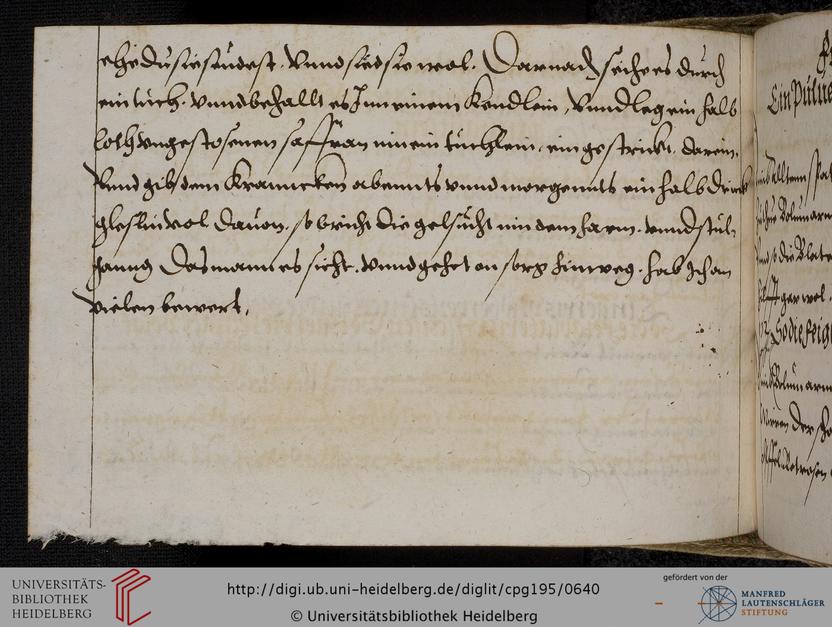 ehe du sie südest. Vnnd sied sie wol. Darnach seihe es durch
ein tuch. vnnd behallt es Jnn einem Kendlein, Vnnd leg ein halb
loth vngestosenen saffran inn ein tüchlein, ein gestrickt, darein,
Vnnd gib dem Kranncken abennts vnnd morgennts ein halb drinck
gleslin vol dauon, so bricht die gelsücht inn dem harn, vnnd stul-
ganng Das mann es sicht, vnnd gehet on sorg hinweg. hab Jch an
vielen bewert,
Ein Puluer
UNIVERSITÄTS-
BIBLIOTHEK
HEIDELBERG
http://digi.ub.uni-heidelberg.de/diglit/cpg195/0640
© Universitätsbibliothek Heidelberg
gefördert von der
MANFRED
LAUTENSCHLÄGER
STIFTUNG